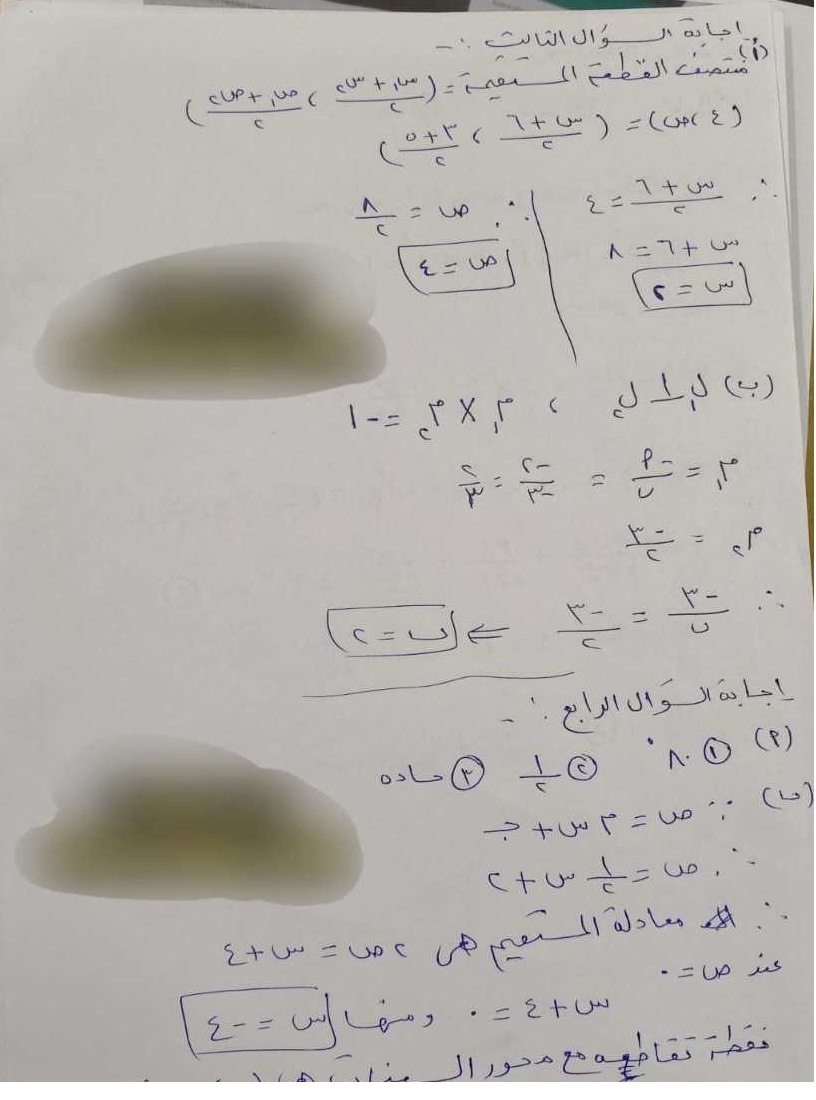 إجابة السؤال الثالث :-
(أ) منتصف القطعة المستقيمة = (س١ + س٢ / ٢ ، ص١ + ص٢ / ٢)
(٤ ، ص) = (س + ٦ / ٢ ، ٣ + ٥ / ٢)
∴ س + ٦ / ٢ = ٤ ∴ ص = ٨ / ٢
س + ٦ = ٨ ص = ٤
س = ٢
(ب) ل١ ⊥ ل٢ ، م١ × م٢ = -١
م١ = -أ / ب = -٢ / -٣ = ٢ / ٣
م٢ = -٣ / ٢
∴ -٣ / ب = -٣ / ٢ ⇐ ب = ٢
إجابة السؤال الرابع :-
(أ) ① ٨٠° ② ١ / ٢ ③ حاده
(ب) ∵ ص = م س + جـ
∴ ص = ١ / ٢ س + ٢
∴ معادلة المستقيم هى ٢ص = س + ٤
عند ص = ٠
س + ٤ = ٠ ومنها س = -٤
نقطة تقاطعه مع محور السينات هى